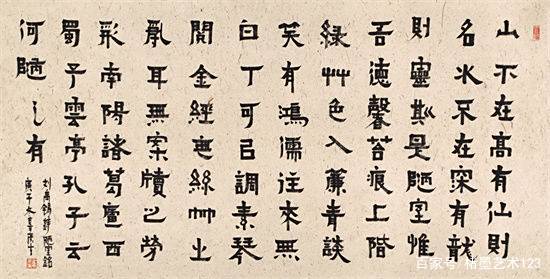 山不在高有仙則
名水不在深有龍
則靈斯是陋室惟
吾德馨苔痕上階
緑艸色入簾青談
笑有鴻儒往來無
白丁可㠯調素琴
閱金經無絲竹之
亂耳無案牘之勞
形南陽諸葛廬西
蜀子雲亭孔子云
何陋之有
刘禹锡詩陋室銘
庚子冬
百家号/墨艺术123